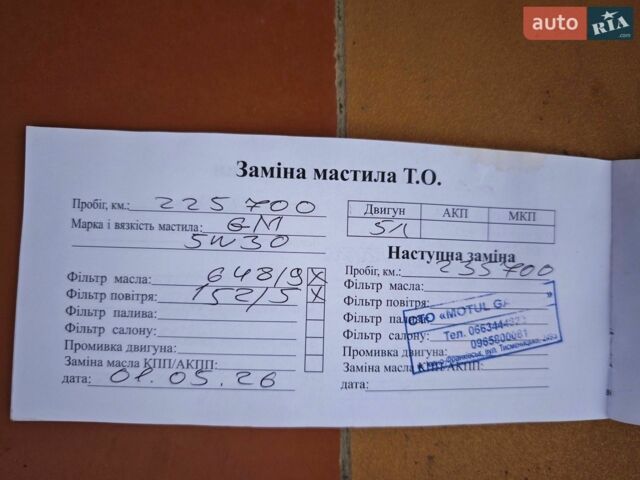 auto RIA .com
Заміна мастила Т.О.
Пробіг, км.: 225 700
Марка і вязкість мастила: GM
5W30
Фільтр масла: 648/9 X
Фільтр повітря: 152/5 X
Фільтр палива:
Фільтр салону:
Промивка двигуна:
Заміна масла КПП/АКПП:
дата: 01.05.26
Двигун АКП МКП
5л
Наступна заміна
Пробіг, км.: 235 700
Фільтр масла:
Фільтр повітря:
Фільтр
Фільтр салону:
Промивка двигуна:
Заміна масла КПП/АКПП:
дата:
СТО «MOTUL
Тел.
0965800061
вул. Тисменицька,